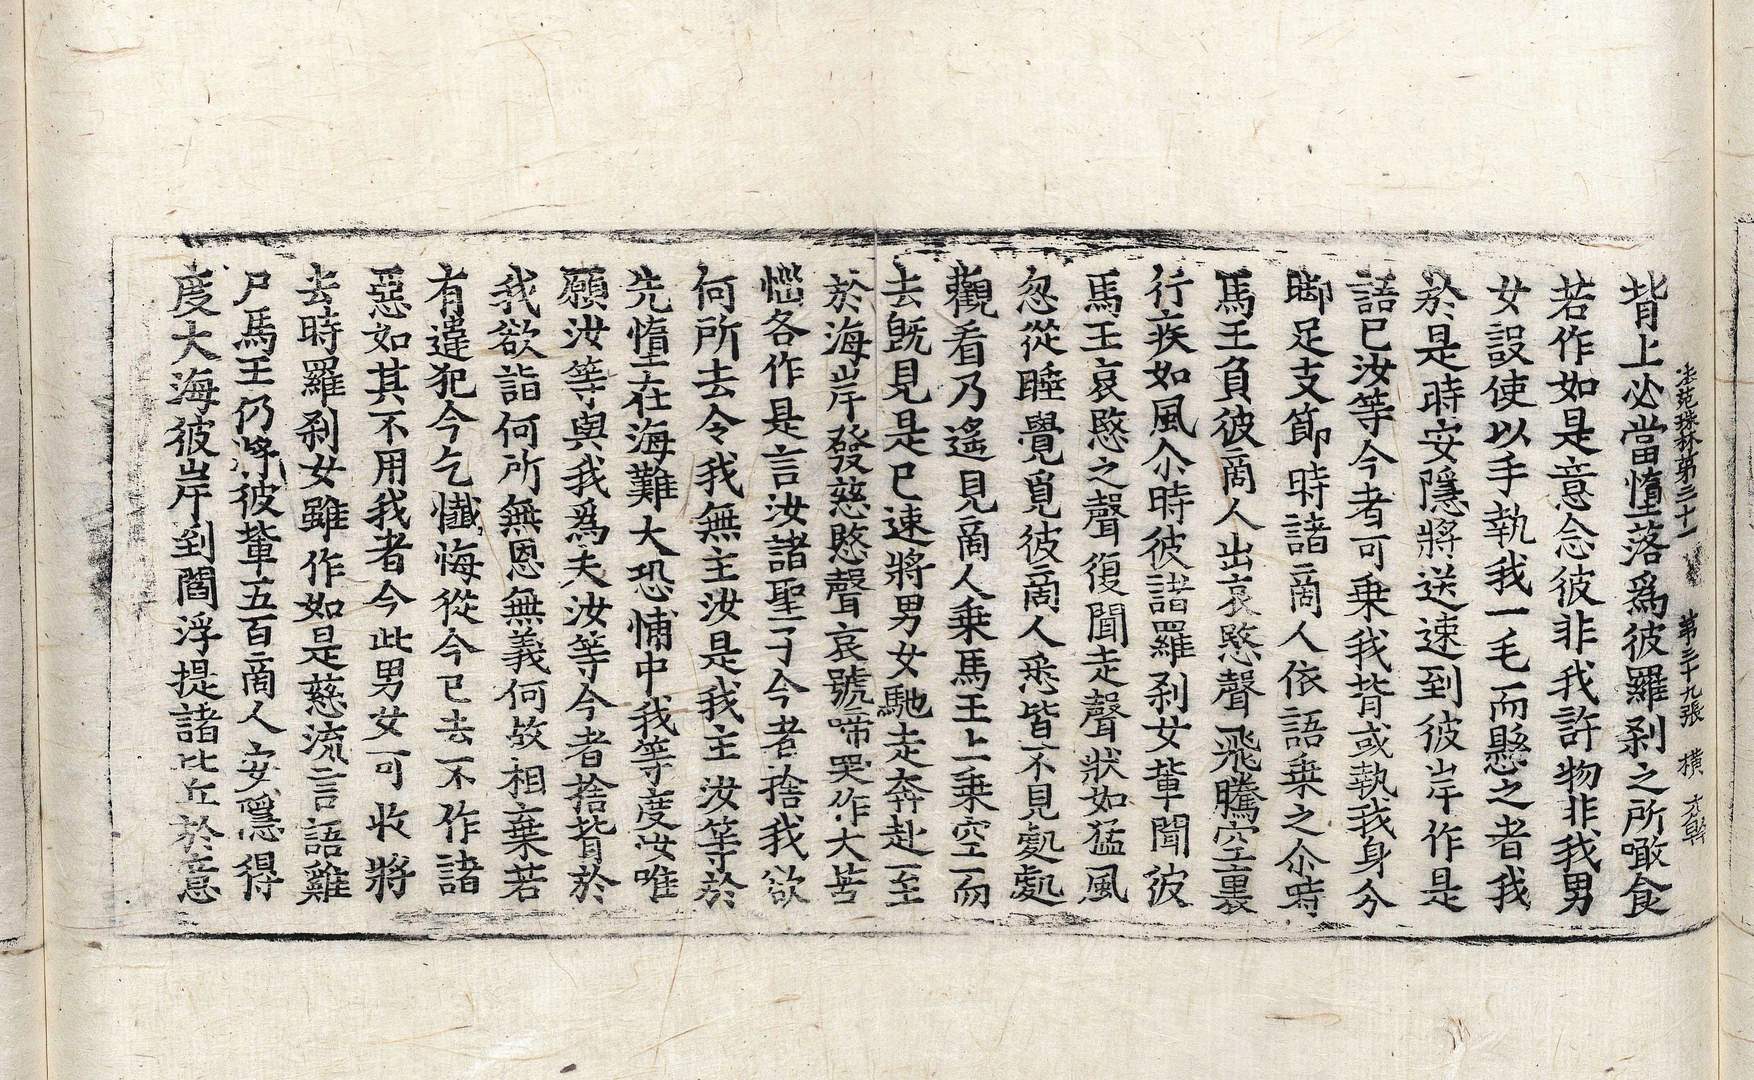 法苑珠林第三十一　第三十九張　橫
背上必當墮落爲彼羅刹之所噉食
若作如是意念彼非我許物非我男
女設使以手執我一毛而懸之者我
於是時安隱將送速到彼岸作是
語已汝等今者可乘我背或執我身分
脚足支節時諸商人依語乘之尒時
馬王負彼商人出哀愍聲飛騰空裏
行疾如風尒時彼諸羅刹女軰聞彼
馬王哀愍之聲復聞走聲狀如猛風
忽從睡覺覓彼商人悉皆不見處處
觀看乃遙見商人乘馬王上乘空而
去旣見是已速將男女馳走奔赴至
於海岸發慈愍聲哀號啼哭作大苦
惱各作是言汝諸聖子今者捨我欲
何所去令我無主汝是我主汝等於
先墮在海難大恐怖中我等度汝唯
願汝等與我爲夫汝等今者捨背於
我欲詣何所無恩無義何故相棄若
有違犯今乞懺悔從今已去不作諸
惡如其不用我者今此男女可收將
去時羅刹女雖作如是慈流言語雞
尸馬王仍將彼軰五百商人安隱得
度大海彼岸到閻浮提諸比丘於意